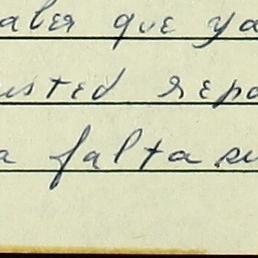 aber que ya
usted repo
a falta su